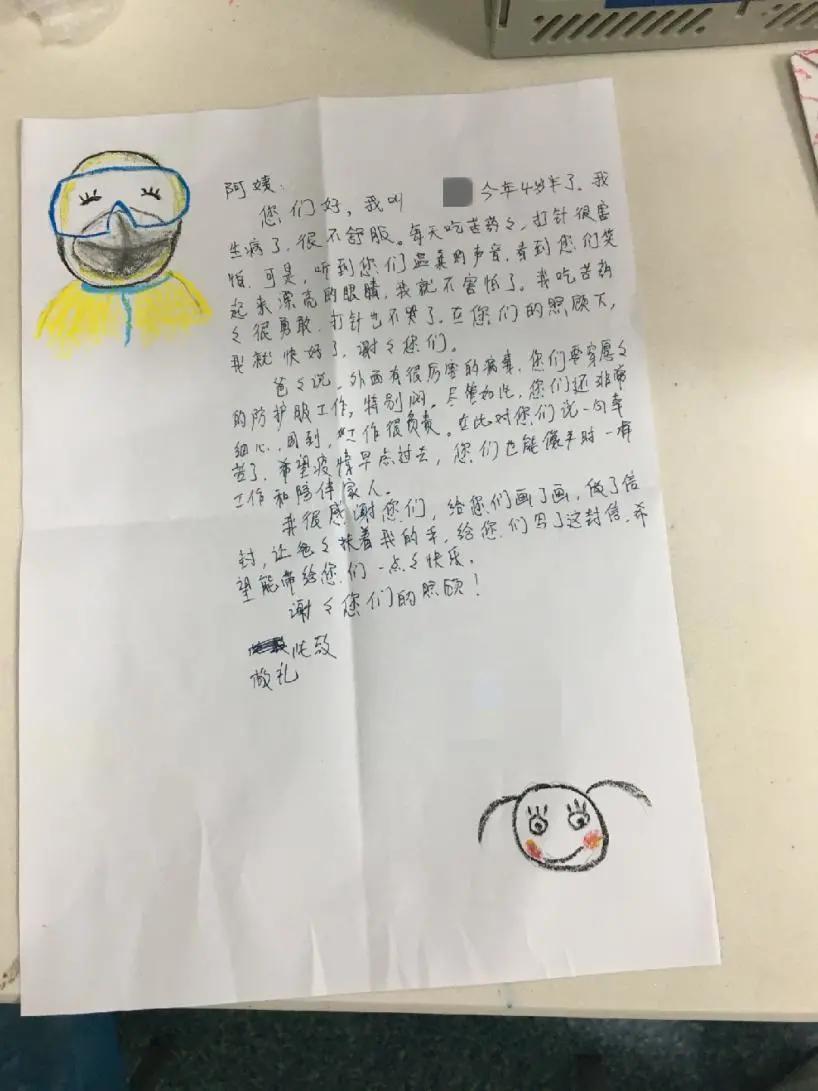 阿姨：
您们好，我叫 今年4岁半了。我
生病了，很不舒服。每天吃苦药々，打针很害
怕，可是，听到您们温柔的声音，看到您们笑
起来漂亮的眼睛，我就不害怕了。我吃苦药
々很勇敢，打针也不哭了。在您们的照顾下，
我就快好了，谢々您们。
爸々说，外面有很厉害的病毒，您们要穿厚々
的防护服工作，特别闷。尽管如此，您们还非常
细心，周到，工作很负责。在此对您们说一句辛
苦了，希望疫情早点过去，您们也能像平时一样
工作和陪伴家人。
我很感谢您们，给您们画了画，做了信
封，让爸々扶着我的手，给您们写了这封信，希
望能带给您们一点々快乐。
谢々您们的照顾！
此致
敬礼